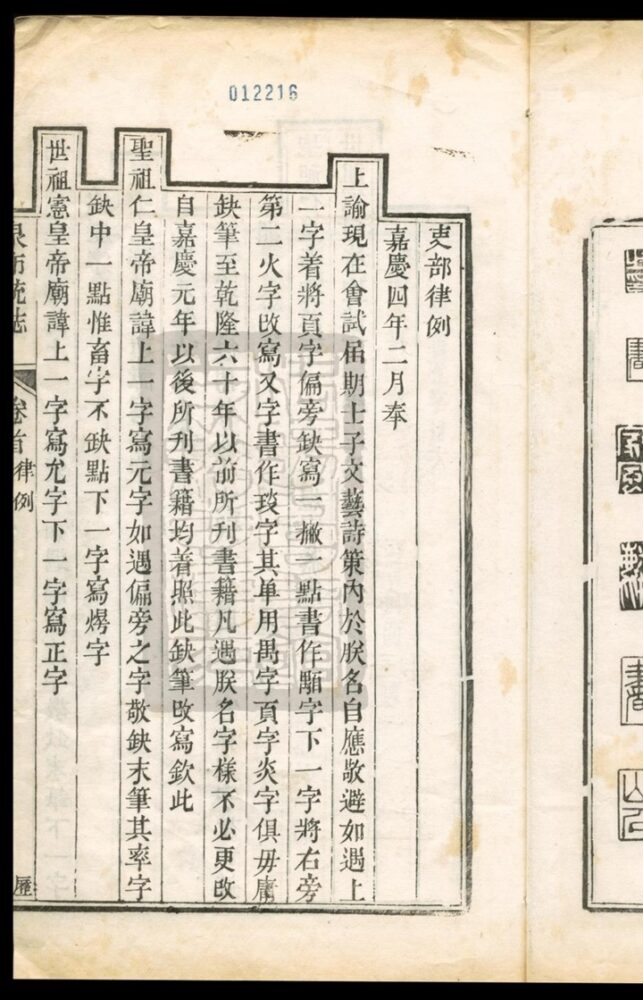 012216
吏部律例
嘉慶四年二月奉
上諭現在會試屆期士子文藝詩策內於朕名自應敬避如遇上
一字着將頁字偏旁缺寫一撇一點書作顒字下一字將右旁
第二火字改寫又字書作琰字其單用禺字頁字炎字俱毋庸
缺筆至乾隆六十年以前所刊書籍凡遇朕名字樣不必更改
自嘉慶元年以後所刊書籍均着照此缺筆改寫欽此
聖祖仁皇帝廟諱上一字寫元字如遇偏旁之字敬缺末筆其率字
缺中一點惟畜字不缺點下一字寫煜字
世祖憲皇帝廟諱上一字寫允字下一字寫正字
泉布統志 卷首 律例